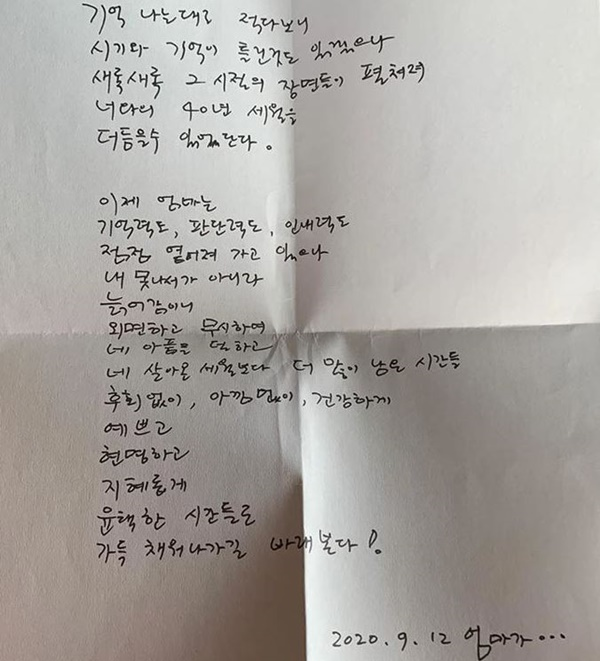 기억 나는대로 적다보니
시기와 기억이 틀린것도 있겠으나
새록새록 그 시절의 장면들이 펼쳐져
너와의 40년 세월을
더듬을수 있었단다.
이제 엄마는
기억력도, 판단력도, 인내력도
점점 옅어져 가고 있으나
내 못나서가 아니라
늙어감이니
외면하고 무시하며
네 아픔을 덜하고
네 살아온 세월보다 더 많이 남은 시간들
후회없이, 아낌없이, 건강하게
예쁘고
현명하고
지혜롭게
윤택한 시간들로
가득 채워나가길 바래본다!
2020. 9. 12 엄마가...